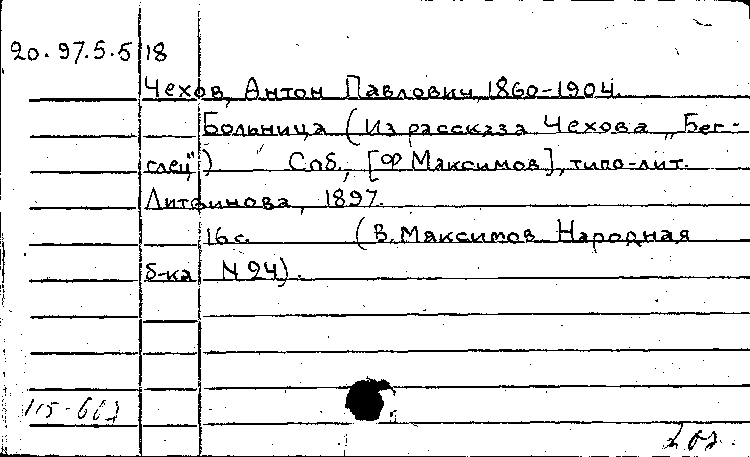 20.97.5.5 18
Чехов, Антон Павлович, 1860-1904.
Больница (Из рассказа Чехова „Бег-
лец") Спб., [Ф Максимов], типо-лит.
Литвинова, 1897.
16 с. (В. Максимов Народная
б-ка N 24).
115-667